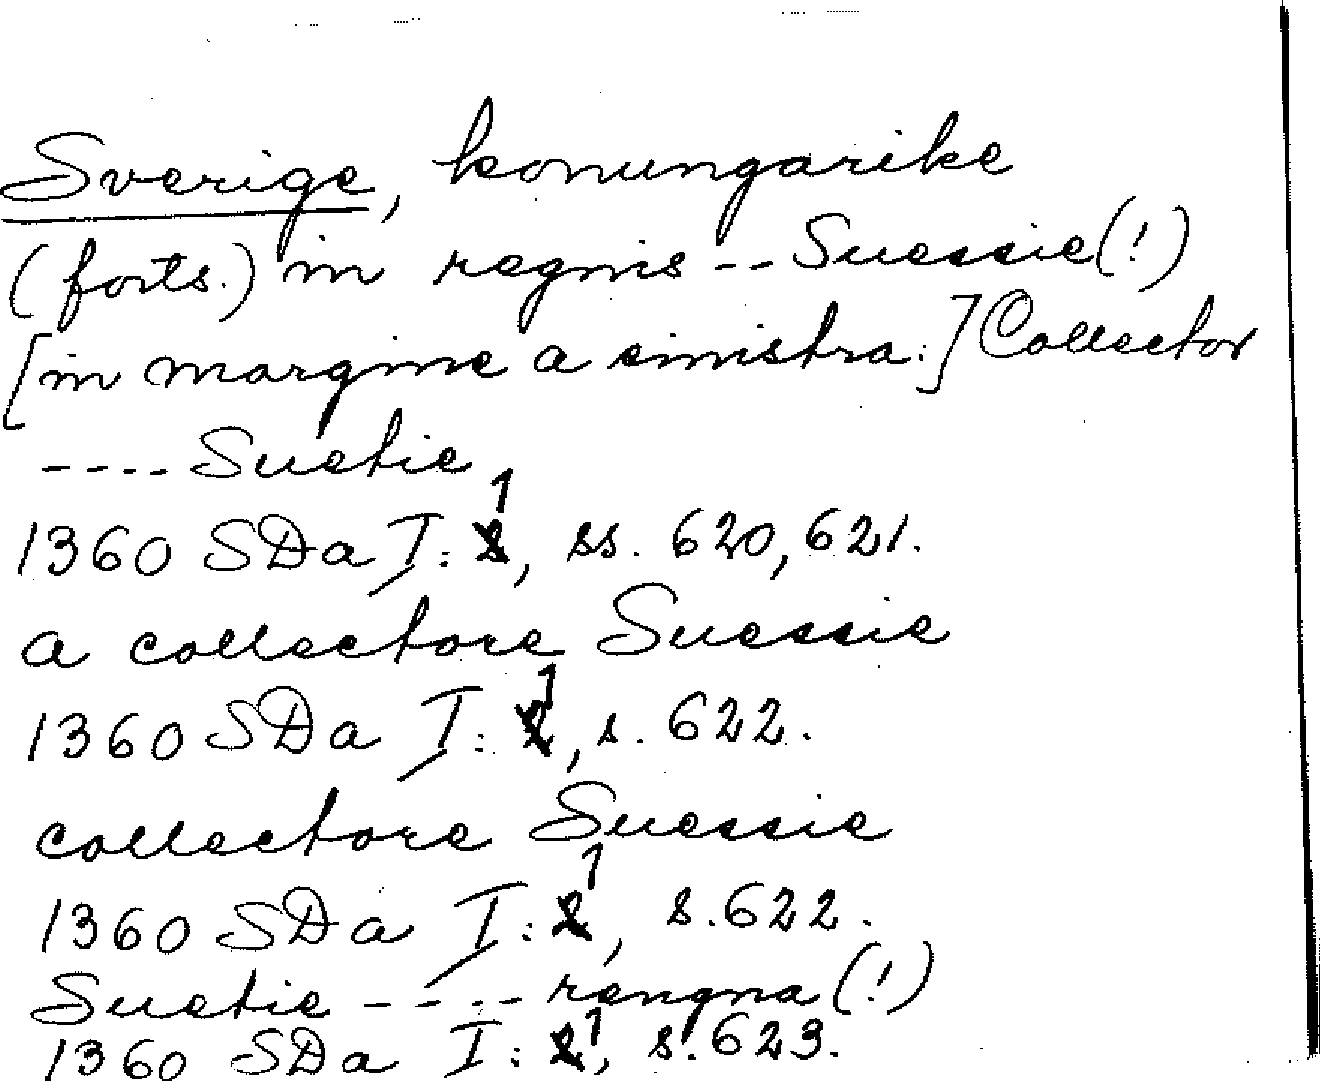 Sverige, konungarike
(forts.) in regnis -- Suessie(!)
[in margine a sinistra:] Collector
---- Suetie
1360 SDa I: 1, ss. 620, 621.
a collectore Suessie
1360 SDa I: 1, s. 622.
collectore Suessie
1360 SDa I: 1, s. 622.
Suetie ---- rengna (!)
1360 SDa I: 1, s. 623.